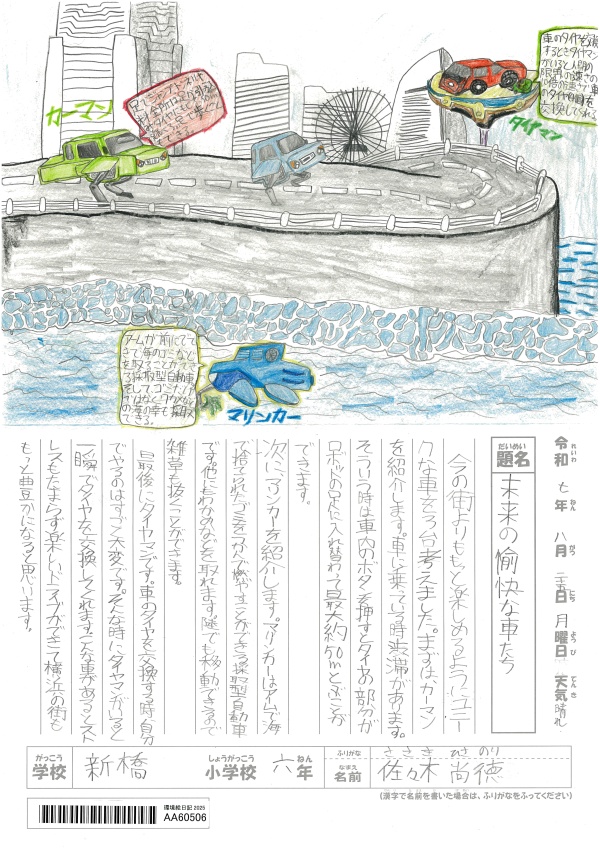 カーマン
車のタイヤを交換
するときタイヤマン
がいると人間の
限界の速さの
10倍の速さで車
のタイヤ4個を
交換してくれる
タイヤマン
アームが前にでて
きて海のゴミなど
を取ることができ
る採取型自動車
そしてゴミだけ
マリンカー
令和 七年 八月 二五日 月曜日 天気 晴れ
れいわ ねん がつ にち ようび てんき
だいめい
題名 未来の愉快な車たち
今の街よりもっと楽しめるようにユニー
クな車を3台考えました。まずは、カーマン
を紹介します。車に乗っている時渋滞があります。
そういう時は車内のボタンを押すとタイヤの部分が
ロボットの足に入れ替わって最大約50mとぶことが
できます。
次に、マリンカーを紹介します。マリンカーはアームで海
で捨てられたゴミをつかで燃やすことができる採取型自動車
です。他にもわかめなどを取れます。陸でも移動できるので
雑草も抜くことができます。
最後にタイヤマンです。車のタイヤを交換する時、自分
でやるのはすごく大変です。そんな時にタイヤマンがいると
一瞬でタイヤを交換してくれます。こんな車があるとスト
レスもたまらず楽しいドライブができて横浜の街も
もっと豊かになると思います。
がっこう しょうがっこう ねん ふりがな ささき ひさのり
学校 新橋 小学校 六年 なまえ 名前 佐々木 尚徳
(漢字で名前を書いた場合は、ふりがなをふってください)
環境絵日記 2025
AA60506